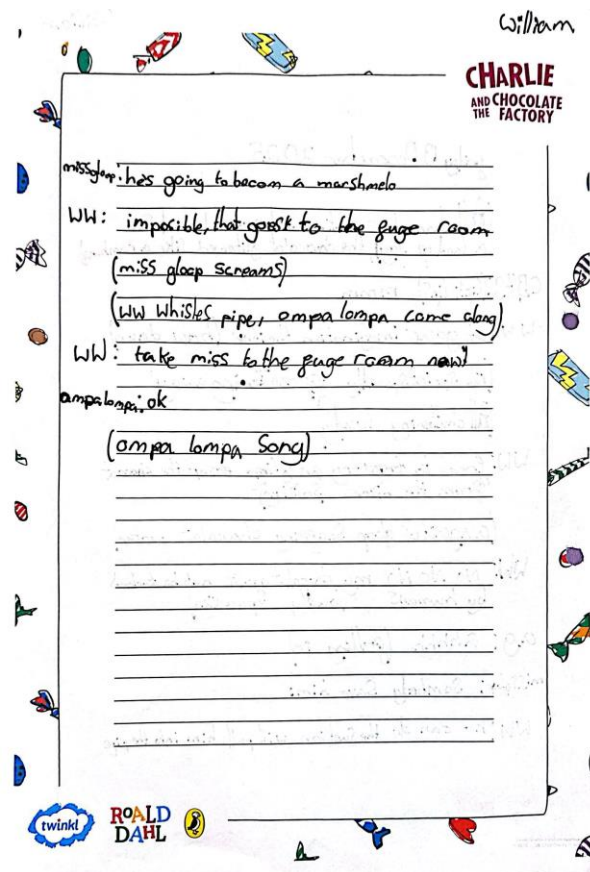 William
CHARLIE
AND CHOCOLATE
THE FACTORY
miss gloop: hes going to becom a marshmelo
WW: imposible, that goesk to the fuge room
(miss gloop screams)
(WW whisles pipe, ompa lompa come along)
WW: take miss to the fuge room now!
ompa lompa: ok
(ompa lompa Song)
twinkl
ROALD
DAHL